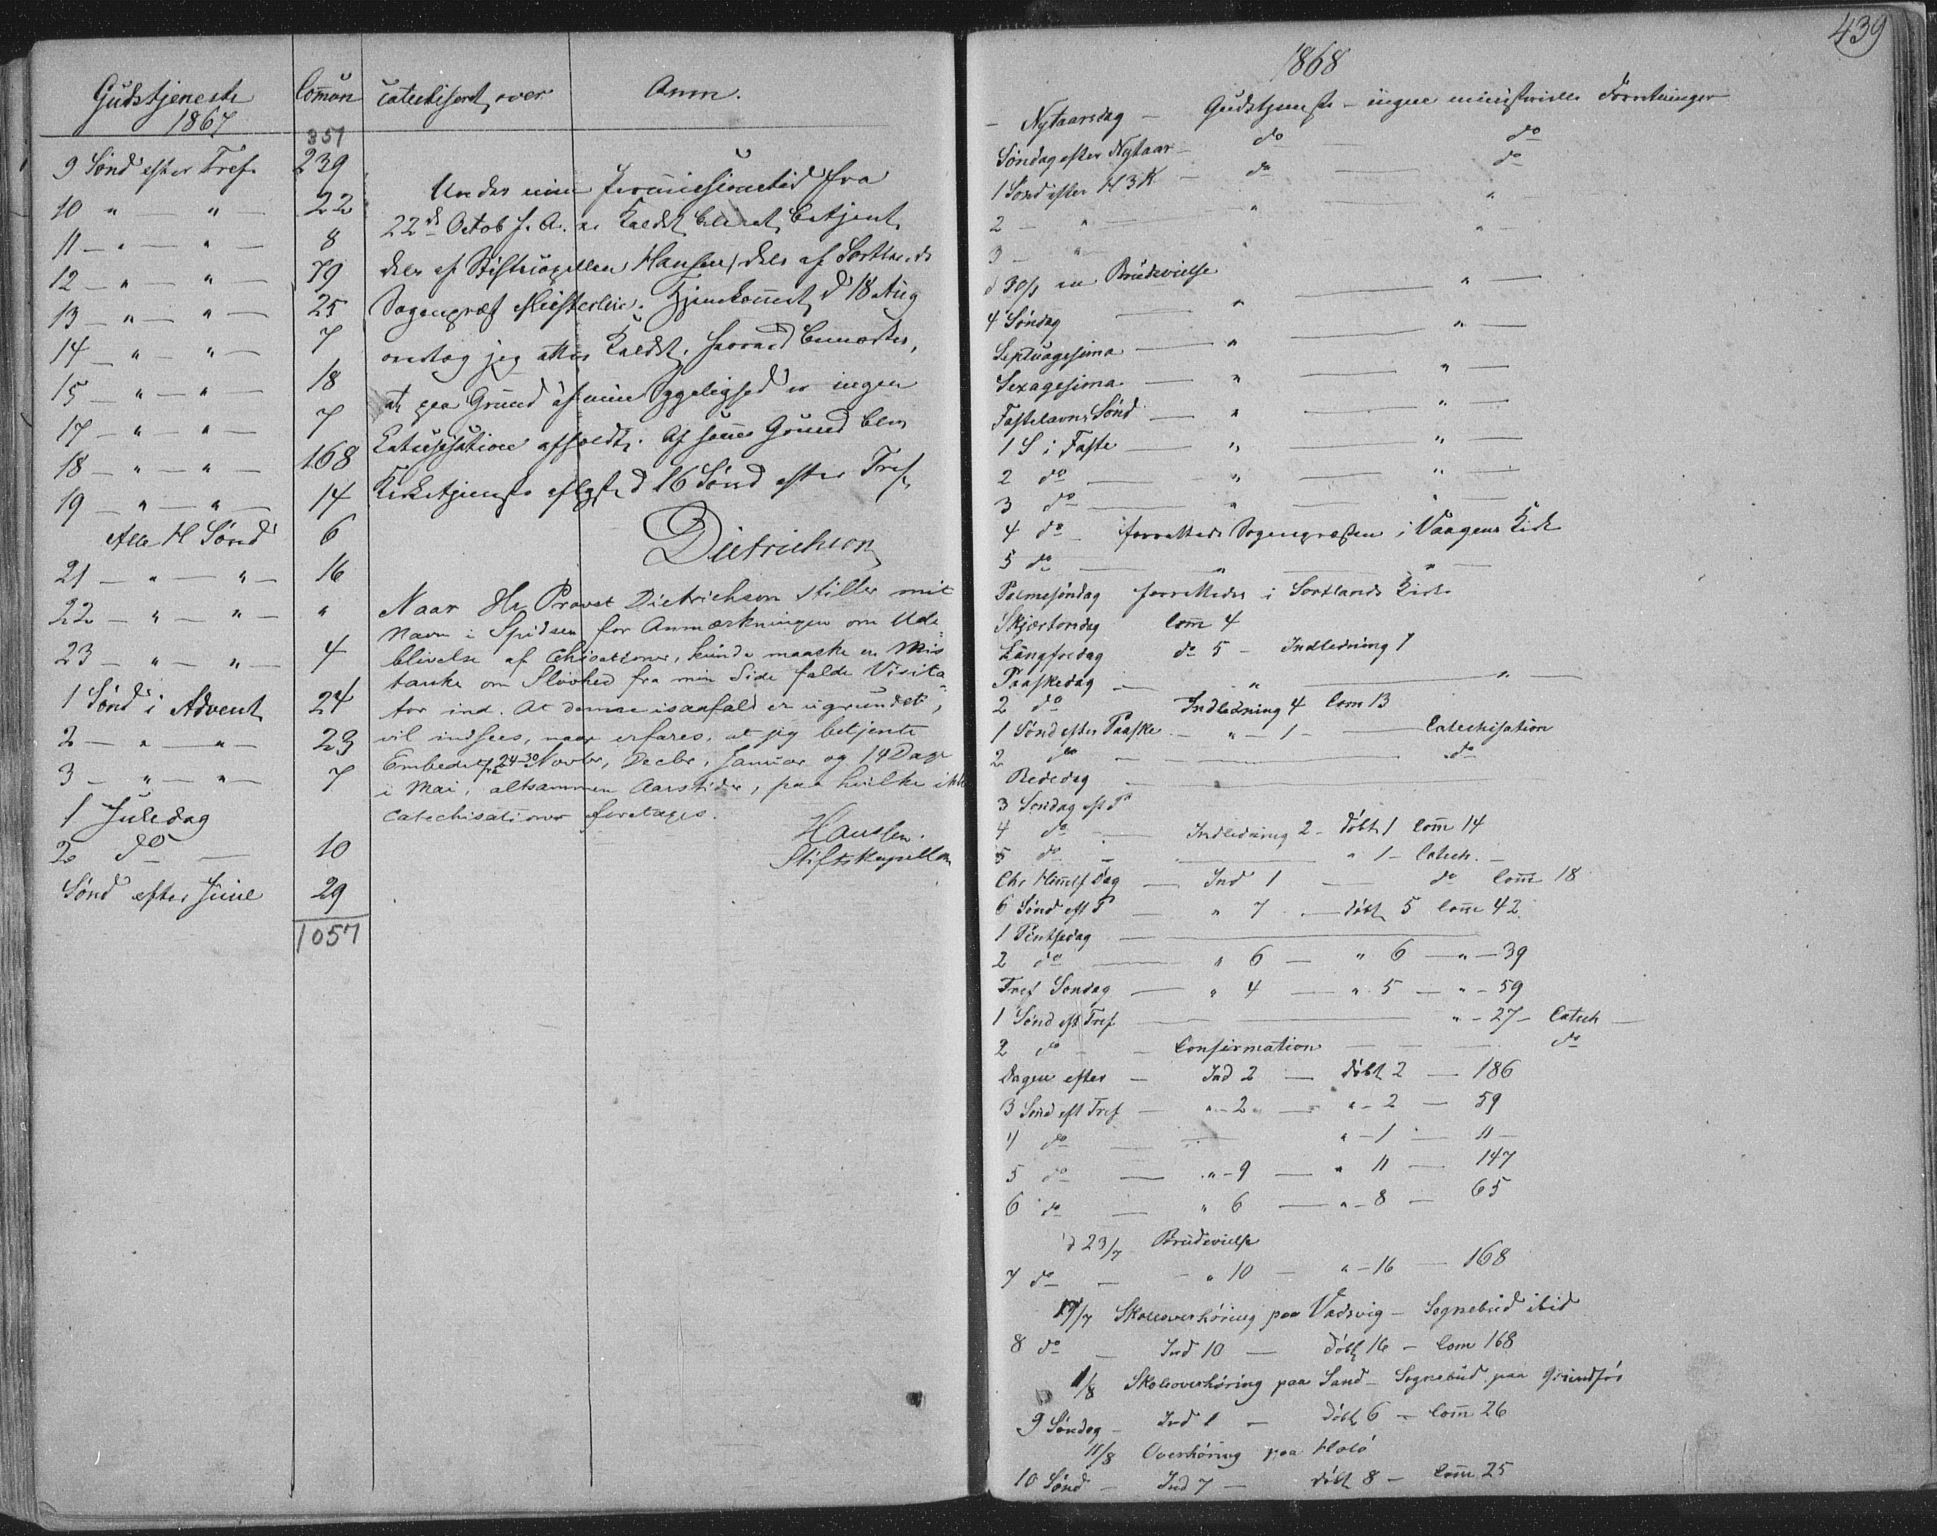 Gudstjeneste
1867
Commun
Catechiseret over
Anm.
351
9 Sønd efter Tref. 239
10 " — " — 22
11 — " — " — 8
12 — " — " — 79
13 — " — " — 25
14 — " — " — 7
15 — " — " — 18
17 — " — " — 7
18 — " — " — 168
19 — " — " — 14
Alle H Sønd 6
21 — " — " — 16
22 — " — " — "
23 — " — " — 4
1 Sønd i Advent 24
2 — " — " — 23
3 — " — " — 7
1 Juledag
2 do — 10
Sønd efter Juul 29
1057
Under min Permissionstid fra
22de Octob f. A. er Kaldet blevet betjent
dels af Stiftscapellan Hansen, dels af Sortlands
Sogneprest. Hjemkommet d 18 Aug
overtog jeg atter Kaldet. Herved bemærkes,
at paa Grund af min Sygelighed er ingen
Katechisation afholdt. Af samme Grund blev
Kirketjeneste aflyst d 16 Sønd efter Tref.
Dietrichson
Naar Hr Provst Dietrichson stiller mit
Navn i Spidsen for Anmærkningen om Ude-
blivelse af Chisationer, kunde maaske en Mis
tanke om Slövhed fra min Side falde Visita-
tor ind. At denne isaafald er ugrundet,
vil indsees, naar erfares, at jeg betjente
Embedet fra 24-30 Novbr, Decbr, Januar og 14 Dage
i Mai, altsammen Aarstider, paa hvilke ikke
Catechisationer foretages.
Hanssen.
Stiftskapellan
439
1868
— Nytaarsdag — Gudstjeneste — ingen ministerielle Forretninger
Søndag efter Nytaar — do — do
1 Sønd efter H 3 K — do — do
2 — " — " — "
3 — " — " — "
d 30/1 en Brudevielse
4 Søndag — " — " —
Septuagesima — " — " —
Sexagesima — " — " —
Fastelavns Sønd — " — " —
1 S i Faste — " — " —
2 do — " — " —
3 do — "
4 do — forrettede Sognepresten i Vaagens Kirke
5 do — " — " —
Palmesøndag forrettedes i Sortlands Kirke
Skjærtorsdag Com 4
Langfredag do 5 — Indledning 1
Paaskedag — " — " —
2 do Indledning 4 Com 13
1 Sønd efter Paaske — " — 1 — Catechisation
2 do — do
Bededag —
3 Søndag eft P
4 do — Indledning 2 — døbt 1 Com 14
5 do — " 1 — Catech. —
Chr Himlf Dag — Ind 1 — do Com 18
6 Sønd eft P — " 7 — døbt 5 Com 42
1 Pintsedag —
2 do — " 6 — " 6 — " — 39
Tref Søndag — " 4 — " 5 — " — 59
1 Sønd eft Tref — " — 27 — Catech —
2 do — Confirmation — — — do
Dagen efter — Ind 2 — døbt 2 — 186
3 Sønd eft Tref — " — 2 " — " — 2 — 59
4 do — " — 1 — 11 —
5 do — " — 9 — " 11 — 147
6 do — " 6 — " — 8 — 65
d 23/7 Brudevielse
7 do — " 10 — " — 16 — 168
17/7 Skoleoverhøring paa Vadsvig — Sognebud ibid
8 do — Ind 10 — døbt 16 — Com 168
1/8 Skoleoverhøring paa Sand — Sognebud paa Grundfør
9 Søndag — Ind 1 — døbt 6 — Com 26
11/8 Overhøring paa Holö
10 Sønd — Ind 7 — døbt 8 — Com 25